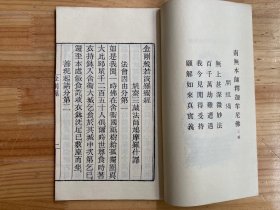 南無本師釋迦牟尼佛
開經偈
無上甚深微妙法
百千萬劫難遭遇
我今見聞得受持
願解如來真實義
金剛般若波羅蜜經
姚秦三藏法師鳩摩羅什譯
法會因由分第一
如是我聞一時佛在舍衛國祇樹給孤獨園與
大比丘眾千二百五十人俱爾時世尊食時著
衣持鉢入舍衛大城乞食於其城中次第乞已
還至本處飯食訖收衣鉢洗足已敷座而坐
善現起請分第二